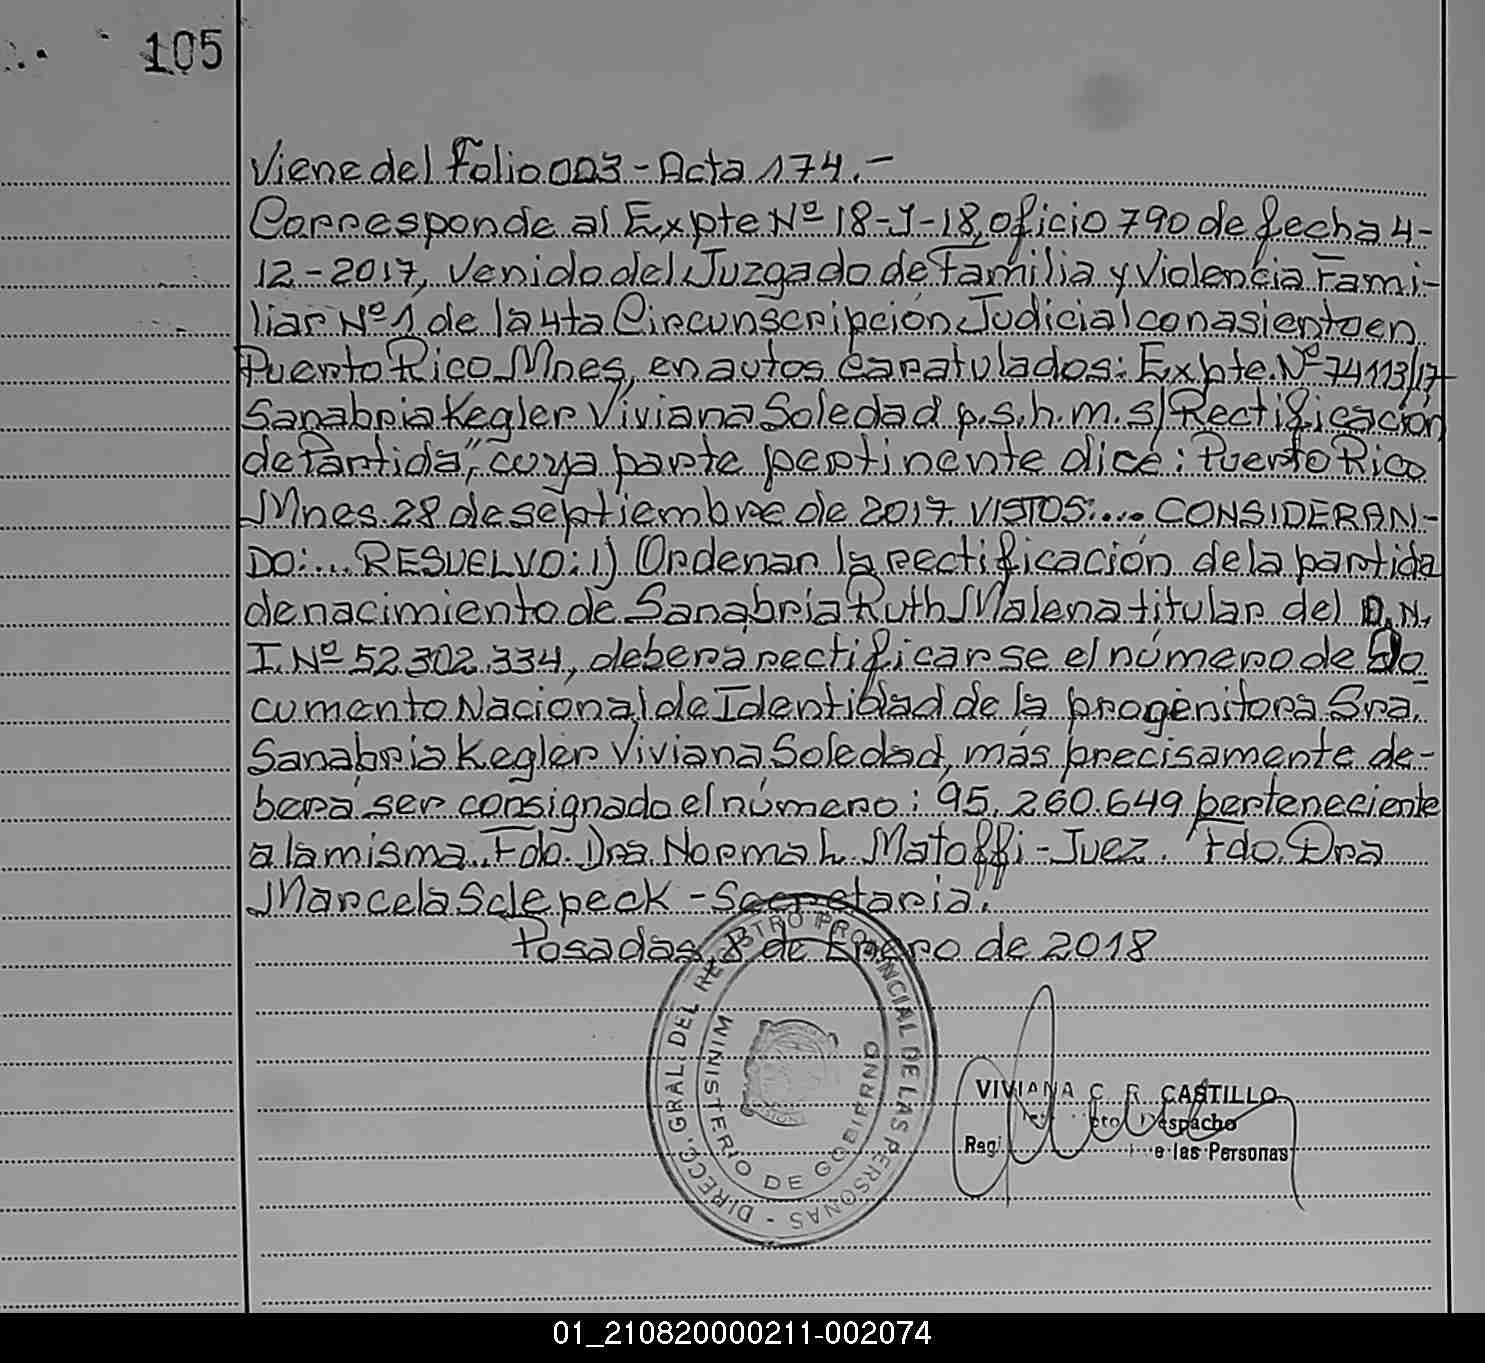 105
Viene del Folio 003 - Acta 174.-
Corresponde al Expte Nº 18-J-18, oficio 790 de fecha 4-
12-2017, Venido del Juzgado de Familia y Violencia Fami-
liar Nº 1 de la 4ta Circunscripción Judicial con asiento en
Puerto Rico Mnes, en autos caratulados: Expte. Nº 74113/17
Sanabria Kegler Viviana Soledad p.s.h.m. s/ Rectificación
de Partida", cuya parte pertinente dice: Puerto Rico
Mnes. 28 de septiembre de 2017. VISTOS:... CONSIDERAN-
DO:... RESUELVO: 1) Ordenar la rectificación de la partida
de nacimiento de Sanabria Ruth Malena titular del D.N.
I. Nº 52.302.334, deberá rectificarse el número de Do
cumento Nacional de Identidad de la progenitora Sra.
Sanabria Kegler Viviana Soledad, más precisamente de-
berá ser consignado el número: 95.260.649 perteneciente
a la misma. Fdo. Dra. Norma L. Matoffi - Juez. Fdo. Dra
Marcela Sclepeck - Secretaria".
Posadas, 8 de Enero de 2018
DIRECC. GRAL. DEL REGISTRO PROVINCIAL DE LAS PERSONAS -
MINISTERIO DE GOBIERNO
VIVIANA C. R. CASTILLO
Despacho
Regi e las Personas
01_210820000211-002074